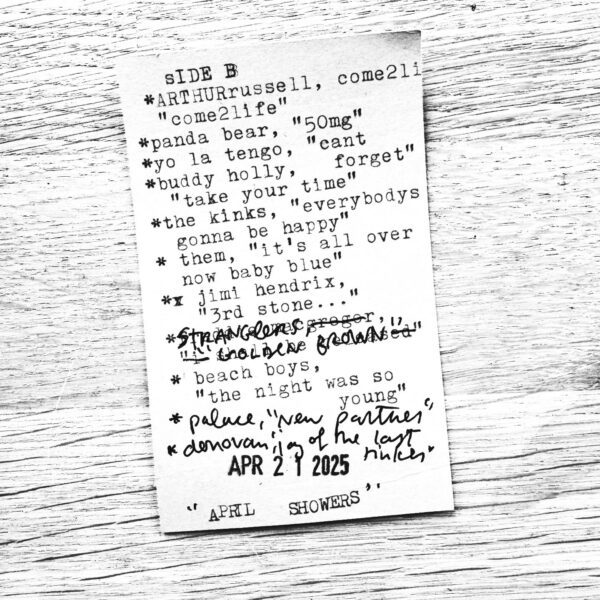 sIDE B
*ARTHURrussell, come2li
"come2life"
*panda bear, "50mg"
*yo la tengo, "cant
forget"
*buddy holly,
"take your time"
*the kinks, "everybodys
gonna be happy"
* them, "it's all over
now baby blue"
*x jimi hendrix,
"3rd stone..."
*STRANGLERS,
"GOLDEN BROWN"
* beach boys,
"the night was so
young"
* palace, "New partner",
* donovan, joy of the last
APR 21 2025
"APRIL SHOWERS"